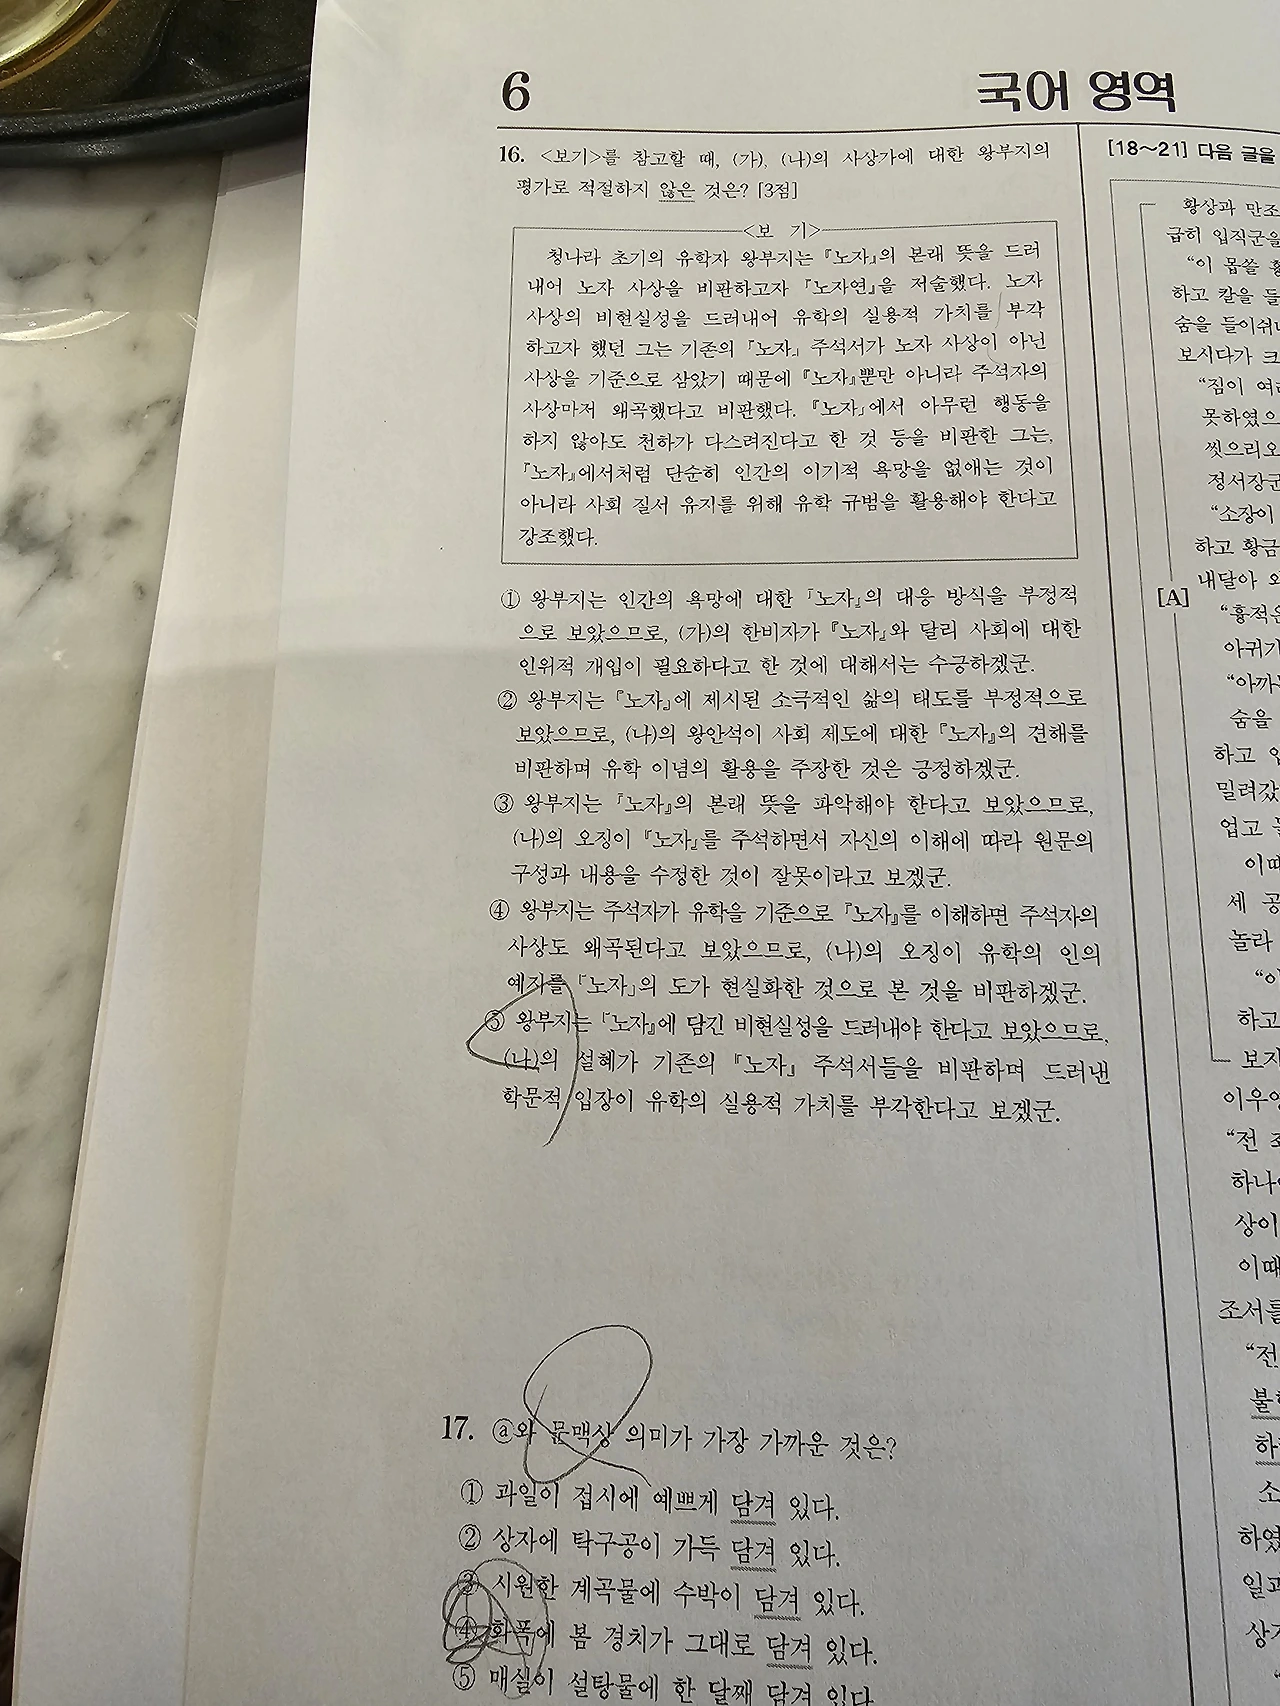 6
국어 영역
16. <보기>를 참고할 때, (가), (나)의 사상가에 대한 왕부지의
평가로 적절하지 않은 것은? [3점]
<보 기>
청나라 초기의 유학자 왕부지는 『노자』의 본래 뜻을 드러
내어 노자 사상을 비판하고자 『노자연』을 저술했다. 노자
사상의 비현실성을 드러내어 유학의 실용적 가치를 부각
하고자 했던 그는 기존의 『노자』 주석서가 노자 사상이 아닌
사상을 기준으로 삼았기 때문에 『노자』뿐만 아니라 주석자의
사상마저 왜곡했다고 비판했다. 『노자』에서 아무런 행동을
하지 않아도 천하가 다스려진다고 한 것 등을 비판한 그는,
『노자』에서처럼 단순히 인간의 이기적 욕망을 없애는 것이
아니라 사회 질서 유지를 위해 유학 규범을 활용해야 한다고
강조했다.
① 왕부지는 인간의 욕망에 대한 『노자』의 대응 방식을 부정적
으로 보았으므로, (가)의 한비자가 『노자』와 달리 사회에 대한
인위적 개입이 필요하다고 한 것에 대해서는 수긍하겠군.
② 왕부지는 『노자』에 제시된 소극적인 삶의 태도를 부정적으로
보았으므로, (나)의 왕안석이 사회 제도에 대한 『노자』의 견해를
비판하며 유학 이념의 활용을 주장한 것은 긍정하겠군.
③ 왕부지는 『노자』의 본래 뜻을 파악해야 한다고 보았으므로,
(나)의 오징이 『노자』를 주석하면서 자신의 이해에 따라 원문의
구성과 내용을 수정한 것이 잘못이라고 보겠군.
④ 왕부지는 주석자가 유학을 기준으로 『노자』를 이해하면 주석자의
사상도 왜곡된다고 보았으므로, (나)의 오징이 유학의 인의
예지를 『노자』의 도가 현실화한 것으로 본 것을 비판하겠군.
⑤ 왕부지는 『노자』에 담긴 비현실성을 드러내야 한다고 보았으므로,
(나)의 설혜가 기존의 『노자』 주석서들을 비판하며 드러낸
학문적 입장이 유학의 실용적 가치를 부각한다고 보겠군.
17. ⓐ와 문맥상 의미가 가장 가까운 것은?
① 과일이 접시에 예쁘게 담겨 있다.
② 상자에 탁구공이 가득 담겨 있다.
③ 시원한 계곡물에 수박이 담겨 있다.
④ 화폭에 봄 경치가 그대로 담겨 있다.
⑤ 매실이 설탕물에 한 달째 담겨 있다
[18～21] 다음 글을
황상과 만조
급히 입직군을
“이 몹쓸
하고 칼을 들
숨을 들이쉬
보시다가 크
“짐이 여
못하였으
씻으리오
정서장군
“소장이
하고 황금
내달아 외
[A]
“흉적은
아귀가
“아까
숨을
하고 입
밀려갔
업고
이때
세 공
놀라
“이
하고
보지
이우영
“전 조
하나
상이
이때
조서를
“전
불
하
소
하였
일
상